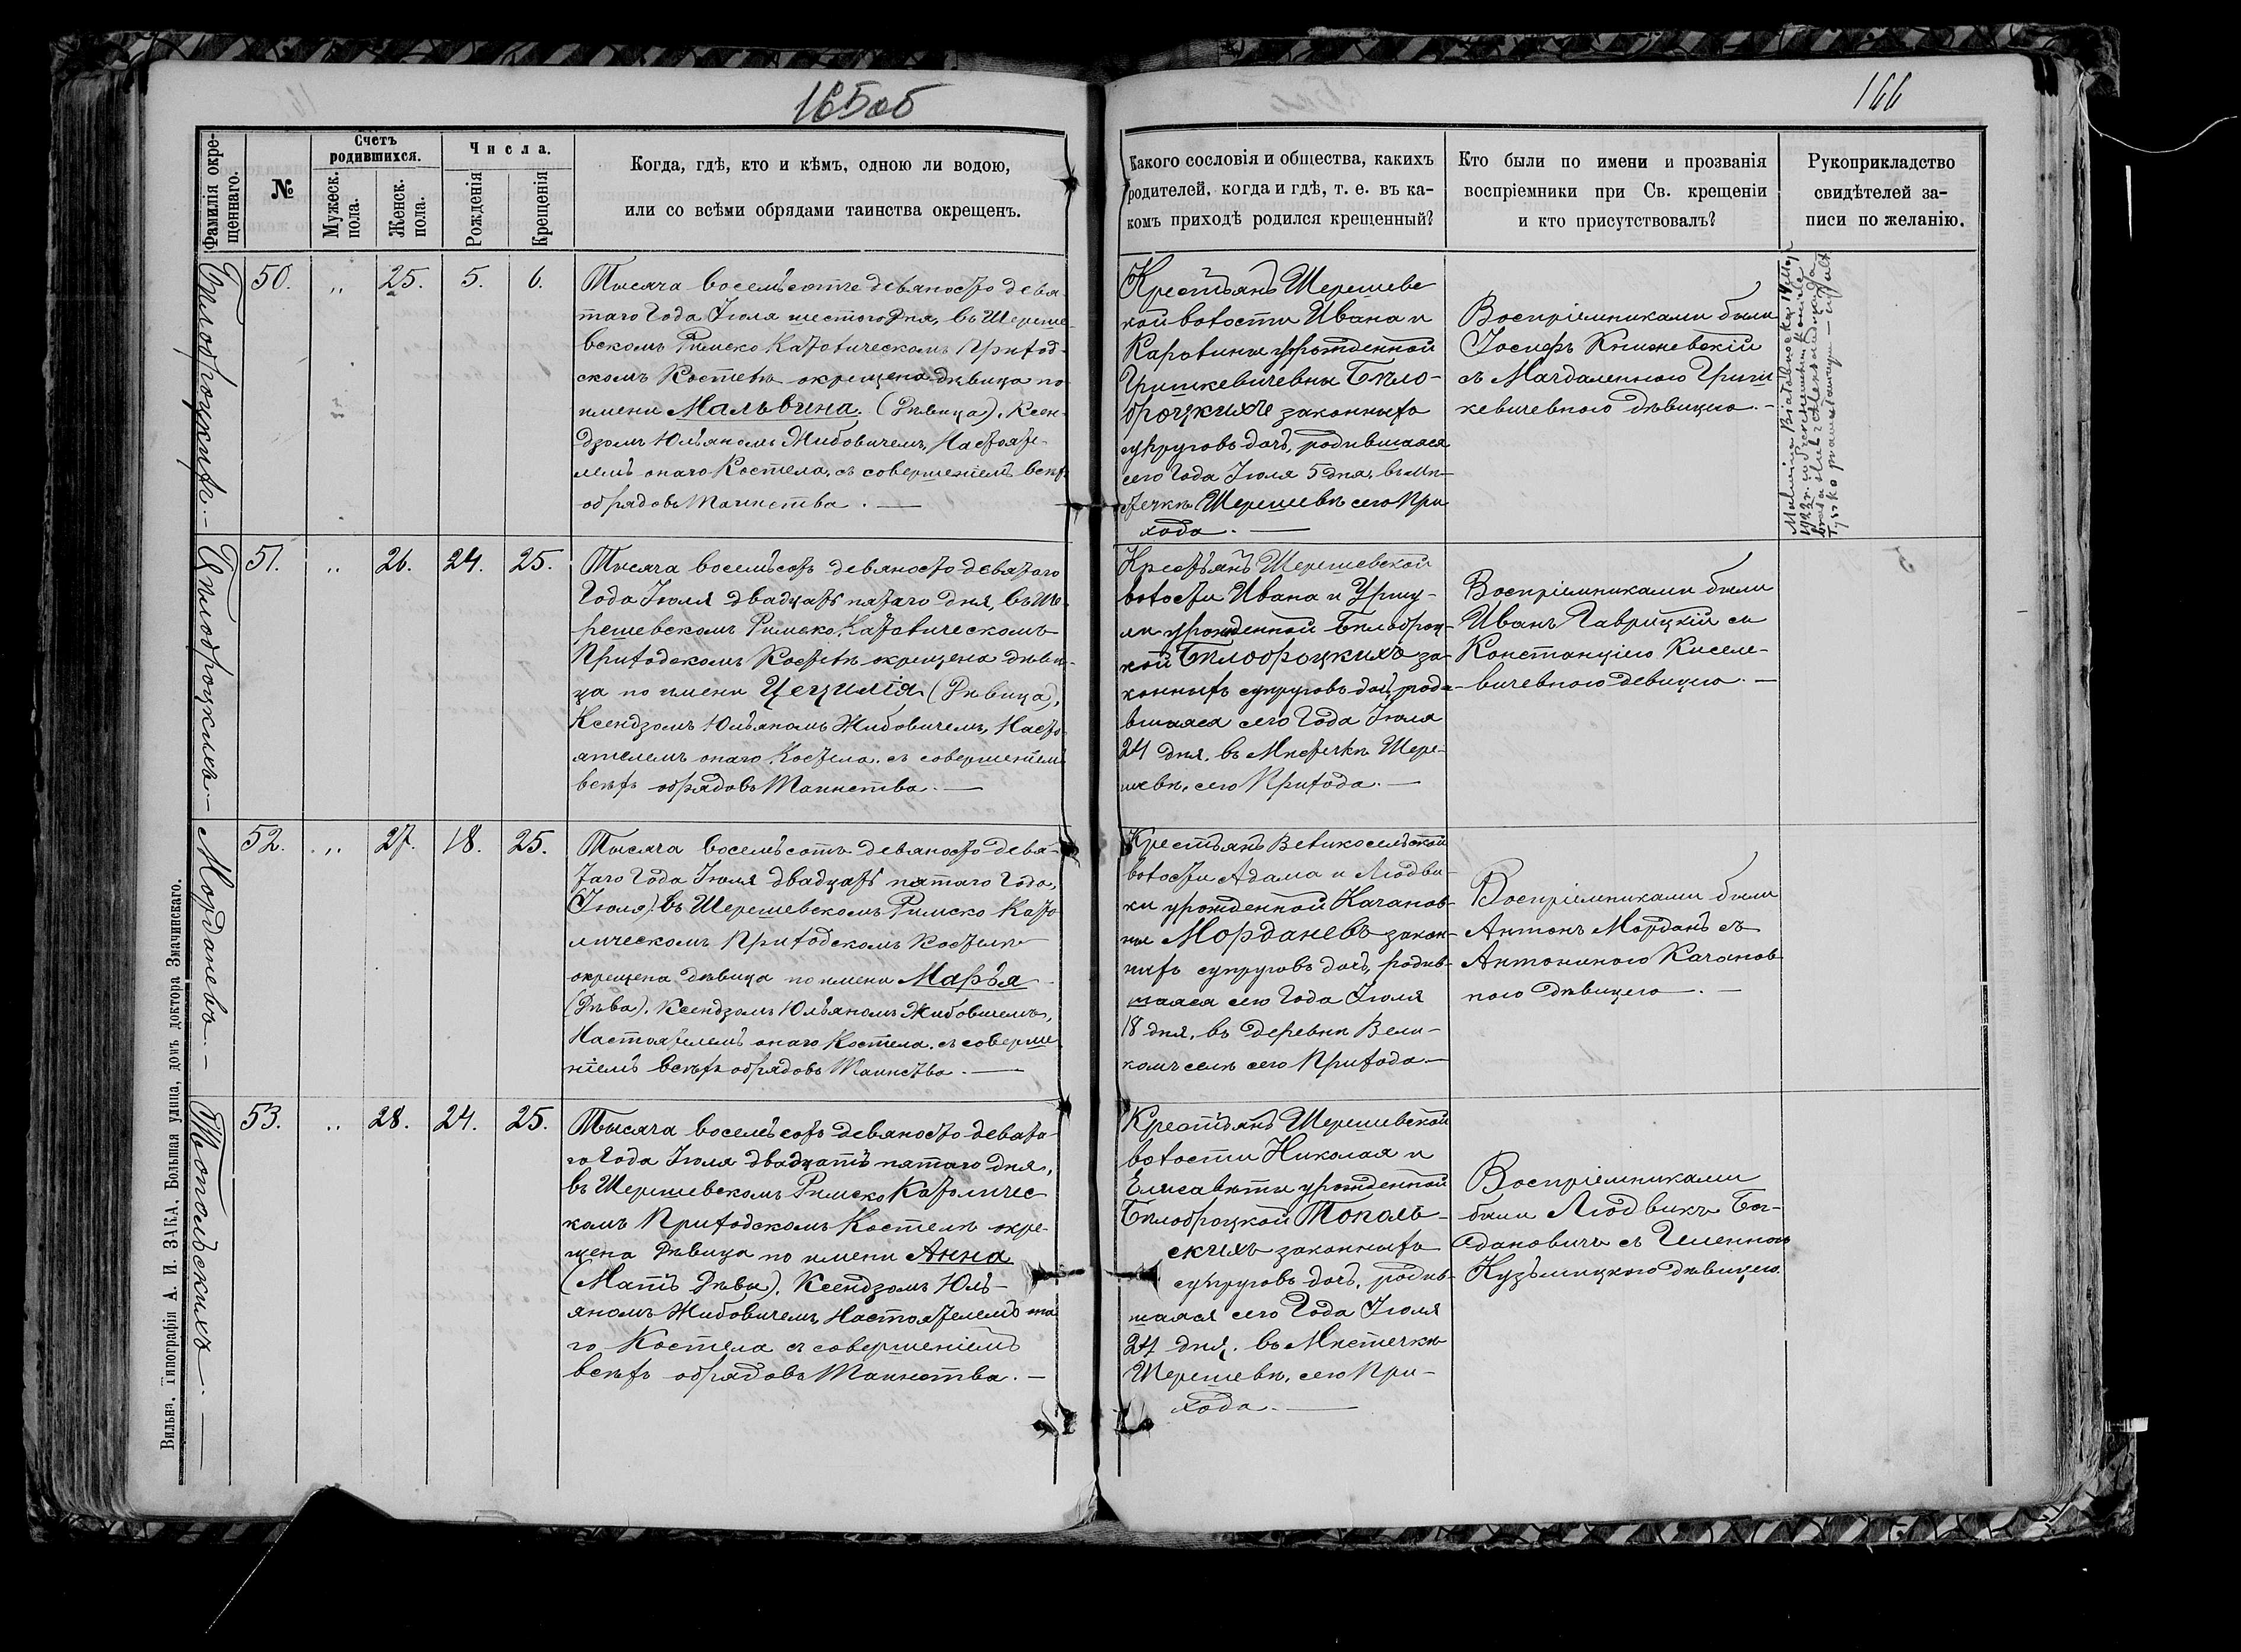 165об
166
Фамилія окре-
щеннаго.
№
Счетъ
родившихся.
Мужеск.
пола.
Женск.
пола.
Числа.
Рожденія
Крещенія
Когда, гдѣ, кто и кѣмъ, одною ли водою,
или со всѣми обрядами таинства окрещенъ.
Какого сословія и общества, какихъ
родителей, когда и гдѣ, т. е. въ ка-
комъ приходѣ родился крещенный?
Кто были по имени и прозванія
воспріемники при Св. крещеніи
и кто присутствовалъ?
Рукоприкладство
свидѣтелей за-
писи по желанію.
Бѣлобродскихъ.-
50.
„
25.
5.
6.
Тысяча восемьсотъ девяносто девя
таго Года Іюля шестого дня, въ Шереше-
вскомъ Римско Католическомъ Приход-
скомъ Костелѣ окрещена дѣвица по
имени Мальвина. (Дѣвица). Ксен-
дзомъ Юльяномъ Жибовичемъ, Настояте-
лемъ онаго Костела, съ совершеніемъ всѣхъ
обрядовъ Таинства. —
Крестьянъ Шерешевс
кой волости Ивана и
Каролины урожденной
Гришкевичевны Бѣло-
броцкихъ законныхъ
супруговъ дочь, родившаяся
сего Года Іюля 5 дня, въ Мѣ-
стечкѣ Шерешевѣ сего При
хода. —
Воспріемниками были
Іосифъ Книжевскій
съ Магдаленною Гриш
кевичевною дѣвицею. —
Бѣлоброцкихъ.-
51.
„
26.
24.
25.
Тысяча восемьсотъ девяносто девятаго
Года Іюля двадцать пятаго дня, въ Ше-
решевскомъ Римско Католическомъ
Приходскомъ Костелѣ окрещена дѣви-
ца по имени Цецилія (Дѣвица),
Ксендзомъ Юльяномъ Жибовичемъ, Насто
ятелемъ онаго Костела, съ совершеніемъ
всѣхъ обрядовъ Таинства. —
Крестьянъ Шерешевской
волости Ивана и Уршу-
ли урожденной Бѣлоброц-
кой Бѣлоброцкихъ за-
конныхъ супруговъ дочь, роди-
вшаяся сего Года Іюля
24 дня, въ Мѣстечкѣ Шере-
шевѣ, сего Прихода. —
Воспріемниками были
Иванъ Гаврицкій съ
Констанціею Киселе-
вичевною девицею. —
Морданевъ. -
52.
„
27.
18.
25.
Тысяча восемьсотъ девяносто девя-
таго Года Іюля двадцать пятаго Года,
(Іюля). въ Шерешевскомъ Римско Като
лическомъ Приходскомъ Костелѣ
окрещена дѣвица по имени Марья
(Дѣва). Ксендзомъ Юльяномъ Жибовичемъ,
Настоятелемъ онаго Костела, съ соверше
ніемъ всѣхъ обрядовъ Таинства. —
Крестьянъ Великосельской
волости Адама и Людви-
ки урожденной Качанов-
ны Морданевъ закон-
ныхъ супруговъ дочь, родив-
шаяся сего Года Іюля
18 дня, въ деревнѣ Вели-
комъ селѣ сего Прихода. —
Воспріемниками были
Антонъ Морданъ съ
Антониною Качанов
ною дѣвицею. —
Топольскихъ. —
53.
„
28.
24.
25.
Тысяча восемьсотъ девяносто девята-
го Года Іюля двадцать пятаго дня,
въ Шерешевскомъ Римско Католичес
комъ Приходскомъ Костелѣ окре-
щена дѣвица по имени Анна
(Мать Дѣвы). Ксендзомъ Юль-
яномъ Жибовичемъ, Настоятелемъ она
го Костела съ совершеніемъ
всѣхъ обрядовъ Таинства. —
Крестьянъ Шерешевской
волости Николая и
Елисаветы урожденной
Бѣлоброцкой Тополь-
скихъ законныхъ
супруговъ дочь, родив-
шаяся сего Года Іюля
24 дня, въ Мѣстечкѣ
Шерешевѣ, сего При-
хода. —
Воспріемниками
были Людвикъ Бог-
дановичъ съ
Кузьмицкою дѣвицею.
Вильна. Типографія А. И. ЗАКА, Большая улица, домъ доктора Змачинскаго.